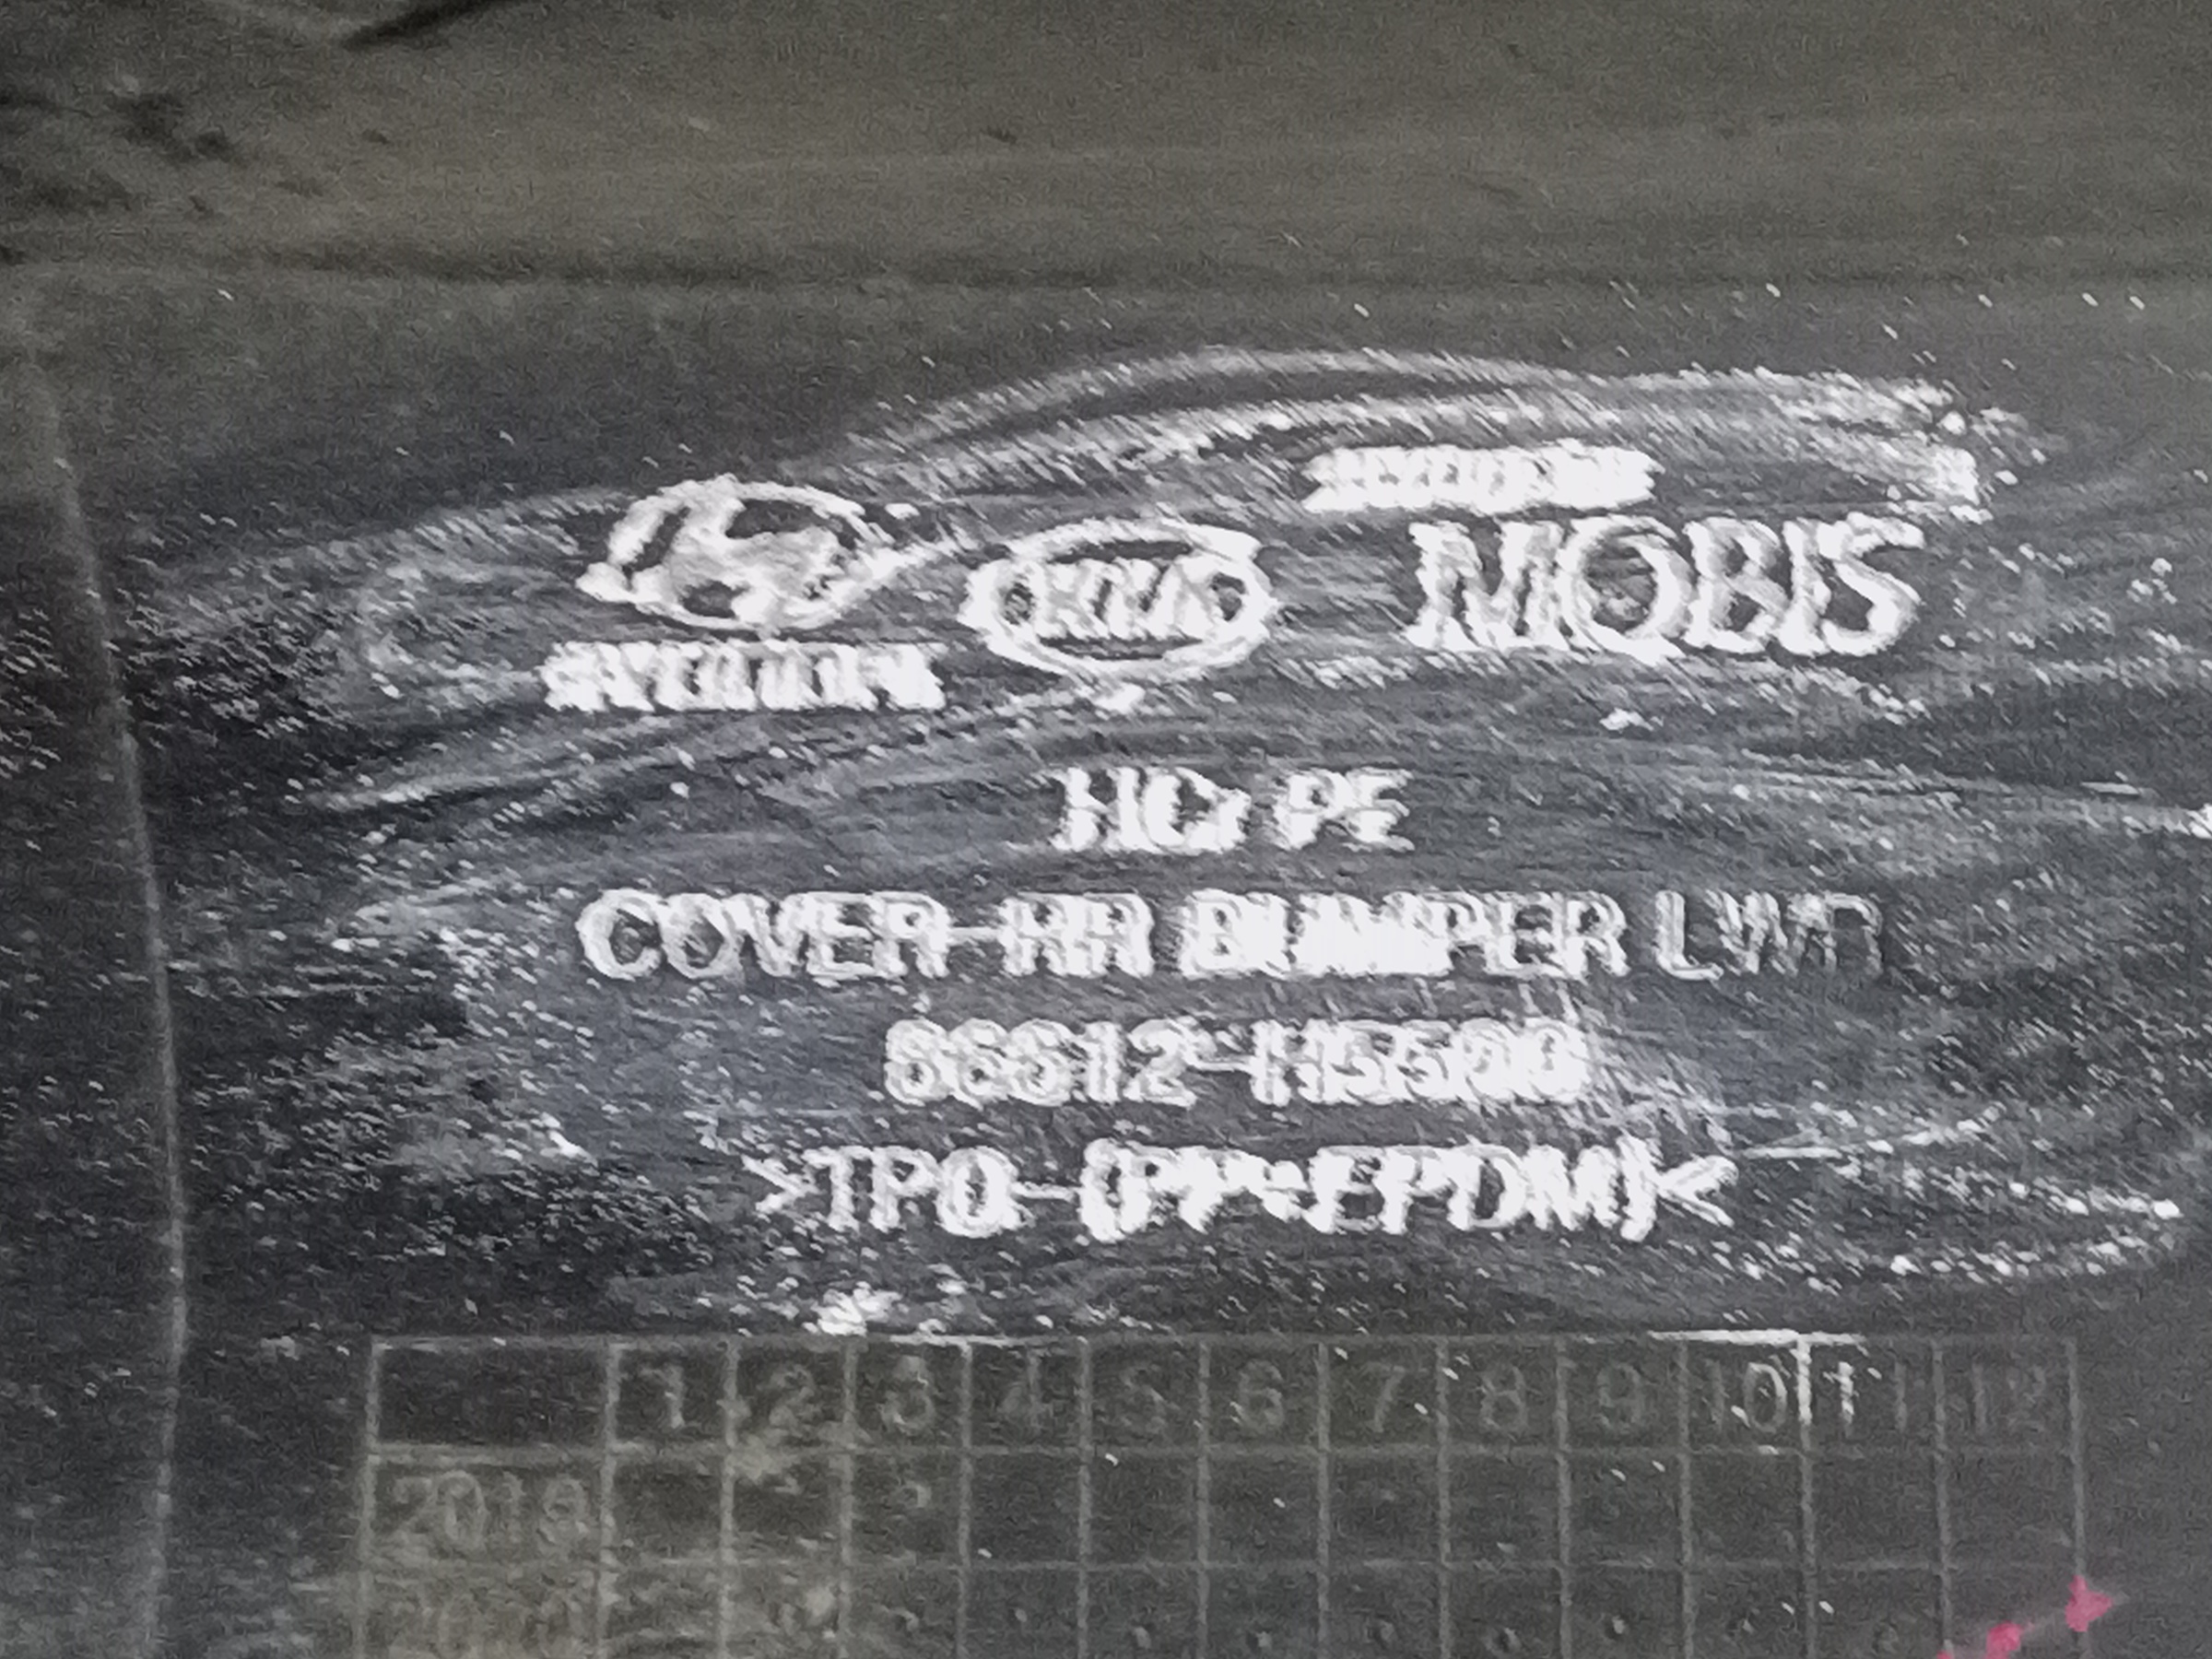 HYUNDAI
MOBIS
KIA
HYUNDAI
HCr PE
COVER-RR BUMPER LWR
86612-H5500
>TPO-(PP+EPDM)<
1 2 3 4 5 6 7 8 9 10 11 12
2019